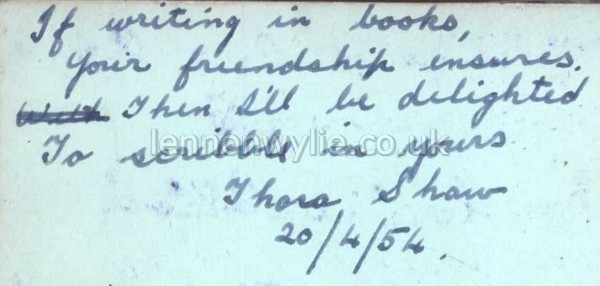 If writing in books,
Your friendship ensures.
With Then I'll be delighted
To scribble in yours
Thora Shaw
20/4/54.
lennonwylie.co.uk